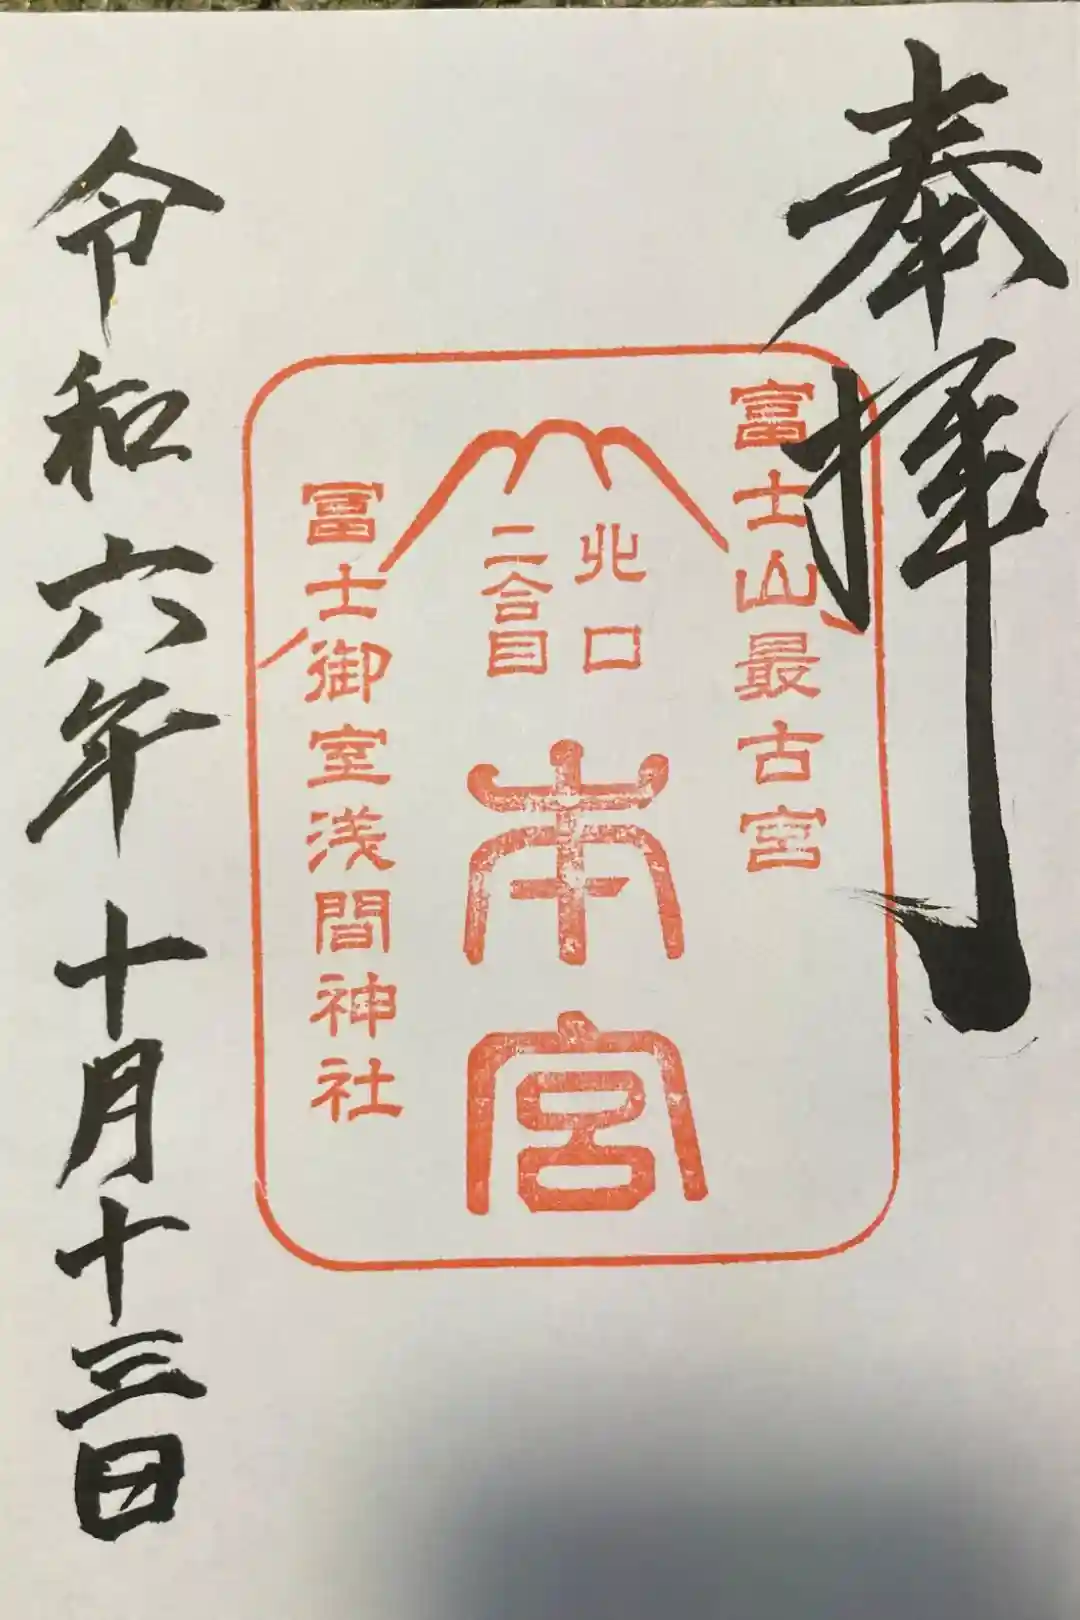 奉拝
富士山最古宮
北口
二合目
本宮
冨士御室浅間神社
令和六年十月十三日